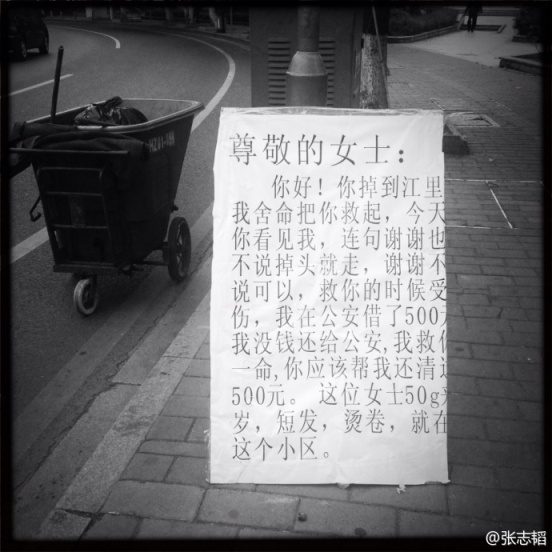 尊敬的女士：
你好！你掉到江里
我舍命把你救起，今天
你看见我，连句谢谢也
不说掉头就走，谢谢不
说可以，救你的时候受
伤，我在公安借了500
我没钱还给公安,我救你
一命,你应该帮我还清这
500元。这位女士50g
岁，短发，烫卷，就在
这个小区。
@张志韬